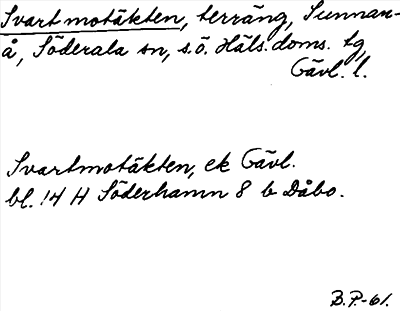 Svartmotäkten, terräng, Sunnan-
å, Söderala sn, s.ö. Häls. doms. tg,
Gävl. l.
Svartmotäkten, ek Gävl.
bl. 14 H Söderhamn 8 b Dåbo.
B.P.-61.